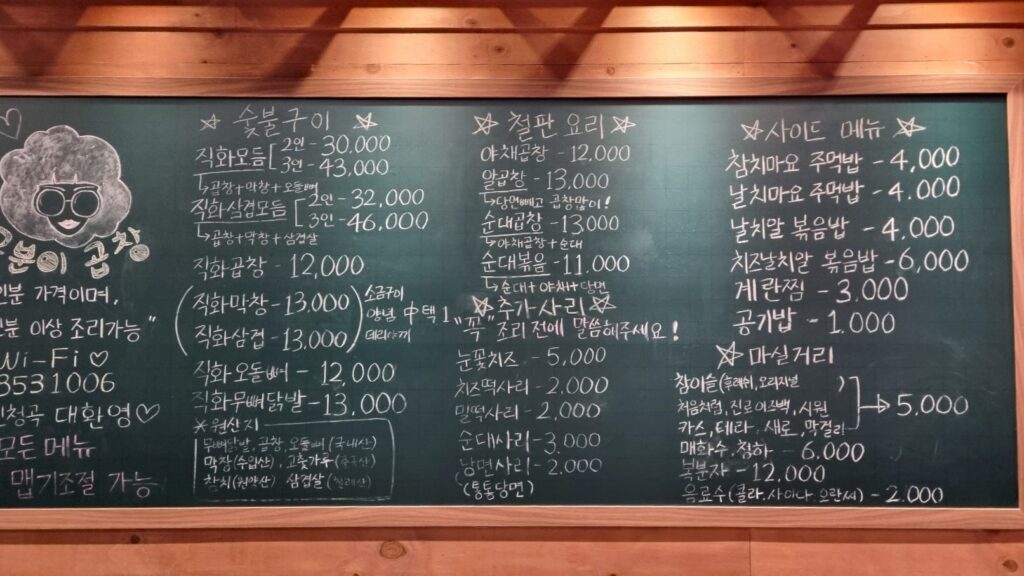 곱창
인분 가격이며,
분 이상 조리가능"
Wi-Fi ♡
3531006
신청곡 대환영♡
모든 메뉴
맵기조절 가능
☆ 숯불구이 ☆
직화모듬 [ 2인 - 30,000
3인 - 43,000
↳ 곱창+막창+오돌뼈
직화삼겹모듬 [ 2인 - 32,000
3인 - 46,000
↳ 곱창+막창+삼겹살
직화곱창 - 12,000
(직화막창 - 13,000
직화삼겹 - 13,000)
소금구이
양념 中 택 1
데리야끼
직화오돌뼈 - 12,000
직화무뼈닭발 - 13,000
※원산지
무뼈닭발, 곱창, 오돌뼈 (국내산)
막창(수입산), 고춧가루 (중국산)
참치(원양산) 삼겹살 (칠레산)
☆ 철판 요리 ☆
야채곱창 - 12,000
알곱창 - 13,000
↳ 당면빼고 곱창많이!
순대곱창 - 13,000
↳ 야채곱창+순대
순대볶음 - 11,000
↳ 순대+야채+당면
☆ 추가사리 ☆
"꼭" 조리 전에 말씀해주세요!
눈꽃치즈 - 5,000
치즈떡사리 - 2,000
밀떡사리 - 2,000
순대사리 - 3,000
당면사리 - 2,000
(통통당면)
☆ 사이드 메뉴 ☆
참치마요 주먹밥 - 4,000
날치마요 주먹밥 - 4,000
날치알 볶음밥 - 4,000
치즈날치알 볶음밥 - 6,000
계란찜 - 3,000
공기밥 - 1,000
☆ 마실거리
참이슬(후레쉬, 오리지널)
처음처럼, 진로이즈백, 시원
카스, 테라, 새로, 막걸리
→ 5,000
매화수, 청하 - 6,000
복분자 - 12,000
음료수(콜라, 사이다, 오란씨) - 2,000